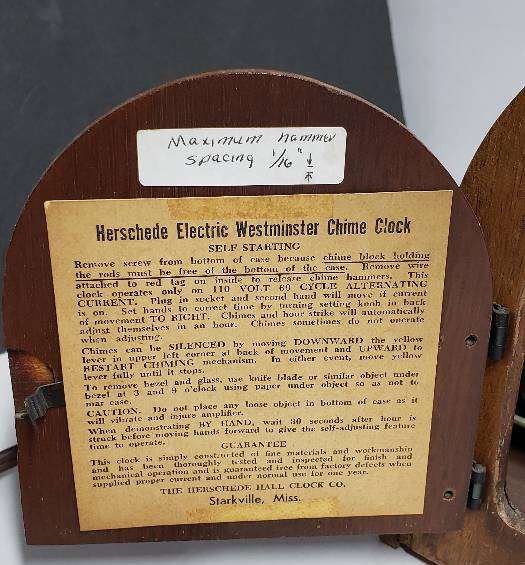 Maximum hammer
spacing 1/16"
Herschede Electric Westminster Chime Clock
SELF STARTING
Remove screw from bottom of case because chime block holding
the rods must be free of the bottom of the case. Remove wire
attached to red tag on inside to release chime hammers. This
clock operates only on 110 VOLT 60 CYCLE ALTERNATING
CURRENT. Plug in socket and second hand will move if current
is on. Set hands to correct time by turning setting knob in back
of movement TO RIGHT. Chimes and hour strike will automatically
adjust themselves in an hour. Chimes sometimes do not operate
when adjusting.
Chimes can be SILENCED by moving DOWNWARD the yellow
lever in upper left corner at back of movement and UPWARD to
RESTART CHIMING mechanism. In either event, move yellow
lever fully until it stops.
To remove bezel and glass, use knife blade or similar object under
bezel at 3 and 9 o'clock using paper under object so as not to
mar case.
CAUTION. Do not place any loose object in bottom of case as it
will vibrate and injure amplifier.
When demonstrating BY HAND, wait 30 seconds after hour is
struck before moving hands forward to give the self-adjusting feature
time to operate.
GUARANTEE
This clock is simply constructed of fine materials and workmanship
and has been thoroughly tested and inspected for finish and
mechanical operation and is guaranteed free from factory defects when
supplied proper current and under normal use for one year.
THE HERSCHEDE HALL CLOCK CO.
Starkville, Miss.